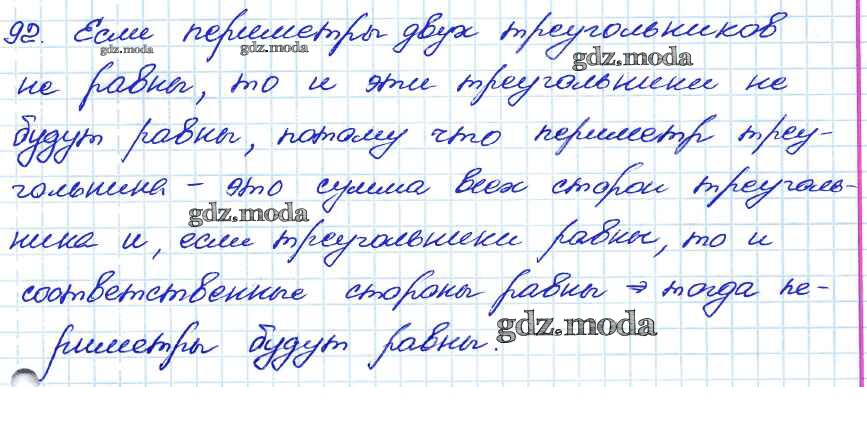 92. Если периметры двух треугольников
gdz.moda gdz.moda gdz.moda
не равны, то и эти треугольники не
будут равны, потому что периметр треу-
гольника - это сумма всех сторон треуголь-
gdz.moda
ника и, если треугольники равны, то и
соответственные стороны равны ⇒ тогда пе-
gdz.moda
риметры будут равны.